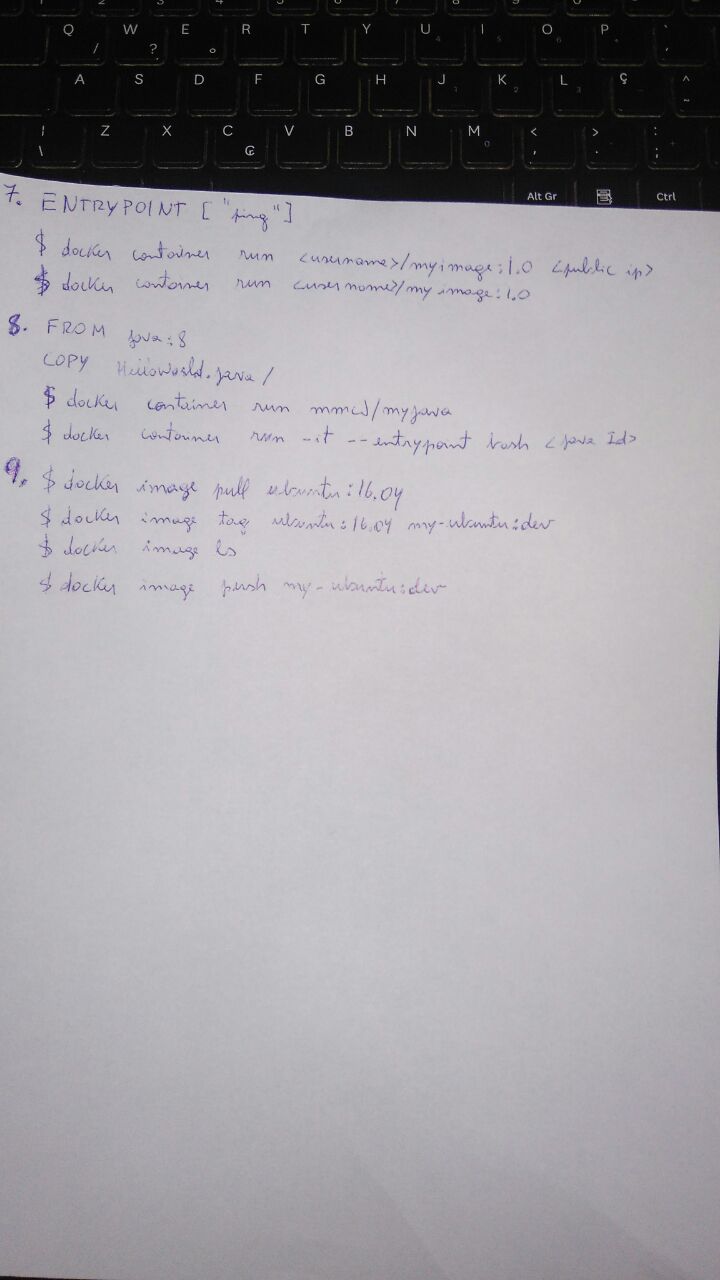 Q W E R T Y U I O P
/ ? °
A S D F G H J K L Ç ^
~
| Z X C V B N M < > :
\ ₢ , . ;
Alt Gr Ctrl
7. ENTRYPOINT ["ping"]
$ docker container run <username>/myimage:1.0 <public ip>
$ docker container run <username>/my image:1.0
8. FROM java:8
COPY HelloWorld.java /
$ docker container run mmcd/myjava
$ docker container run -it --entrypoint bash <java Id>
9. $ docker image pull ubuntu:16.04
$ docker image tag ubuntu:16.04 my-ubuntu:dev
$ docker image ls
$ docker image push my-ubuntu:dev